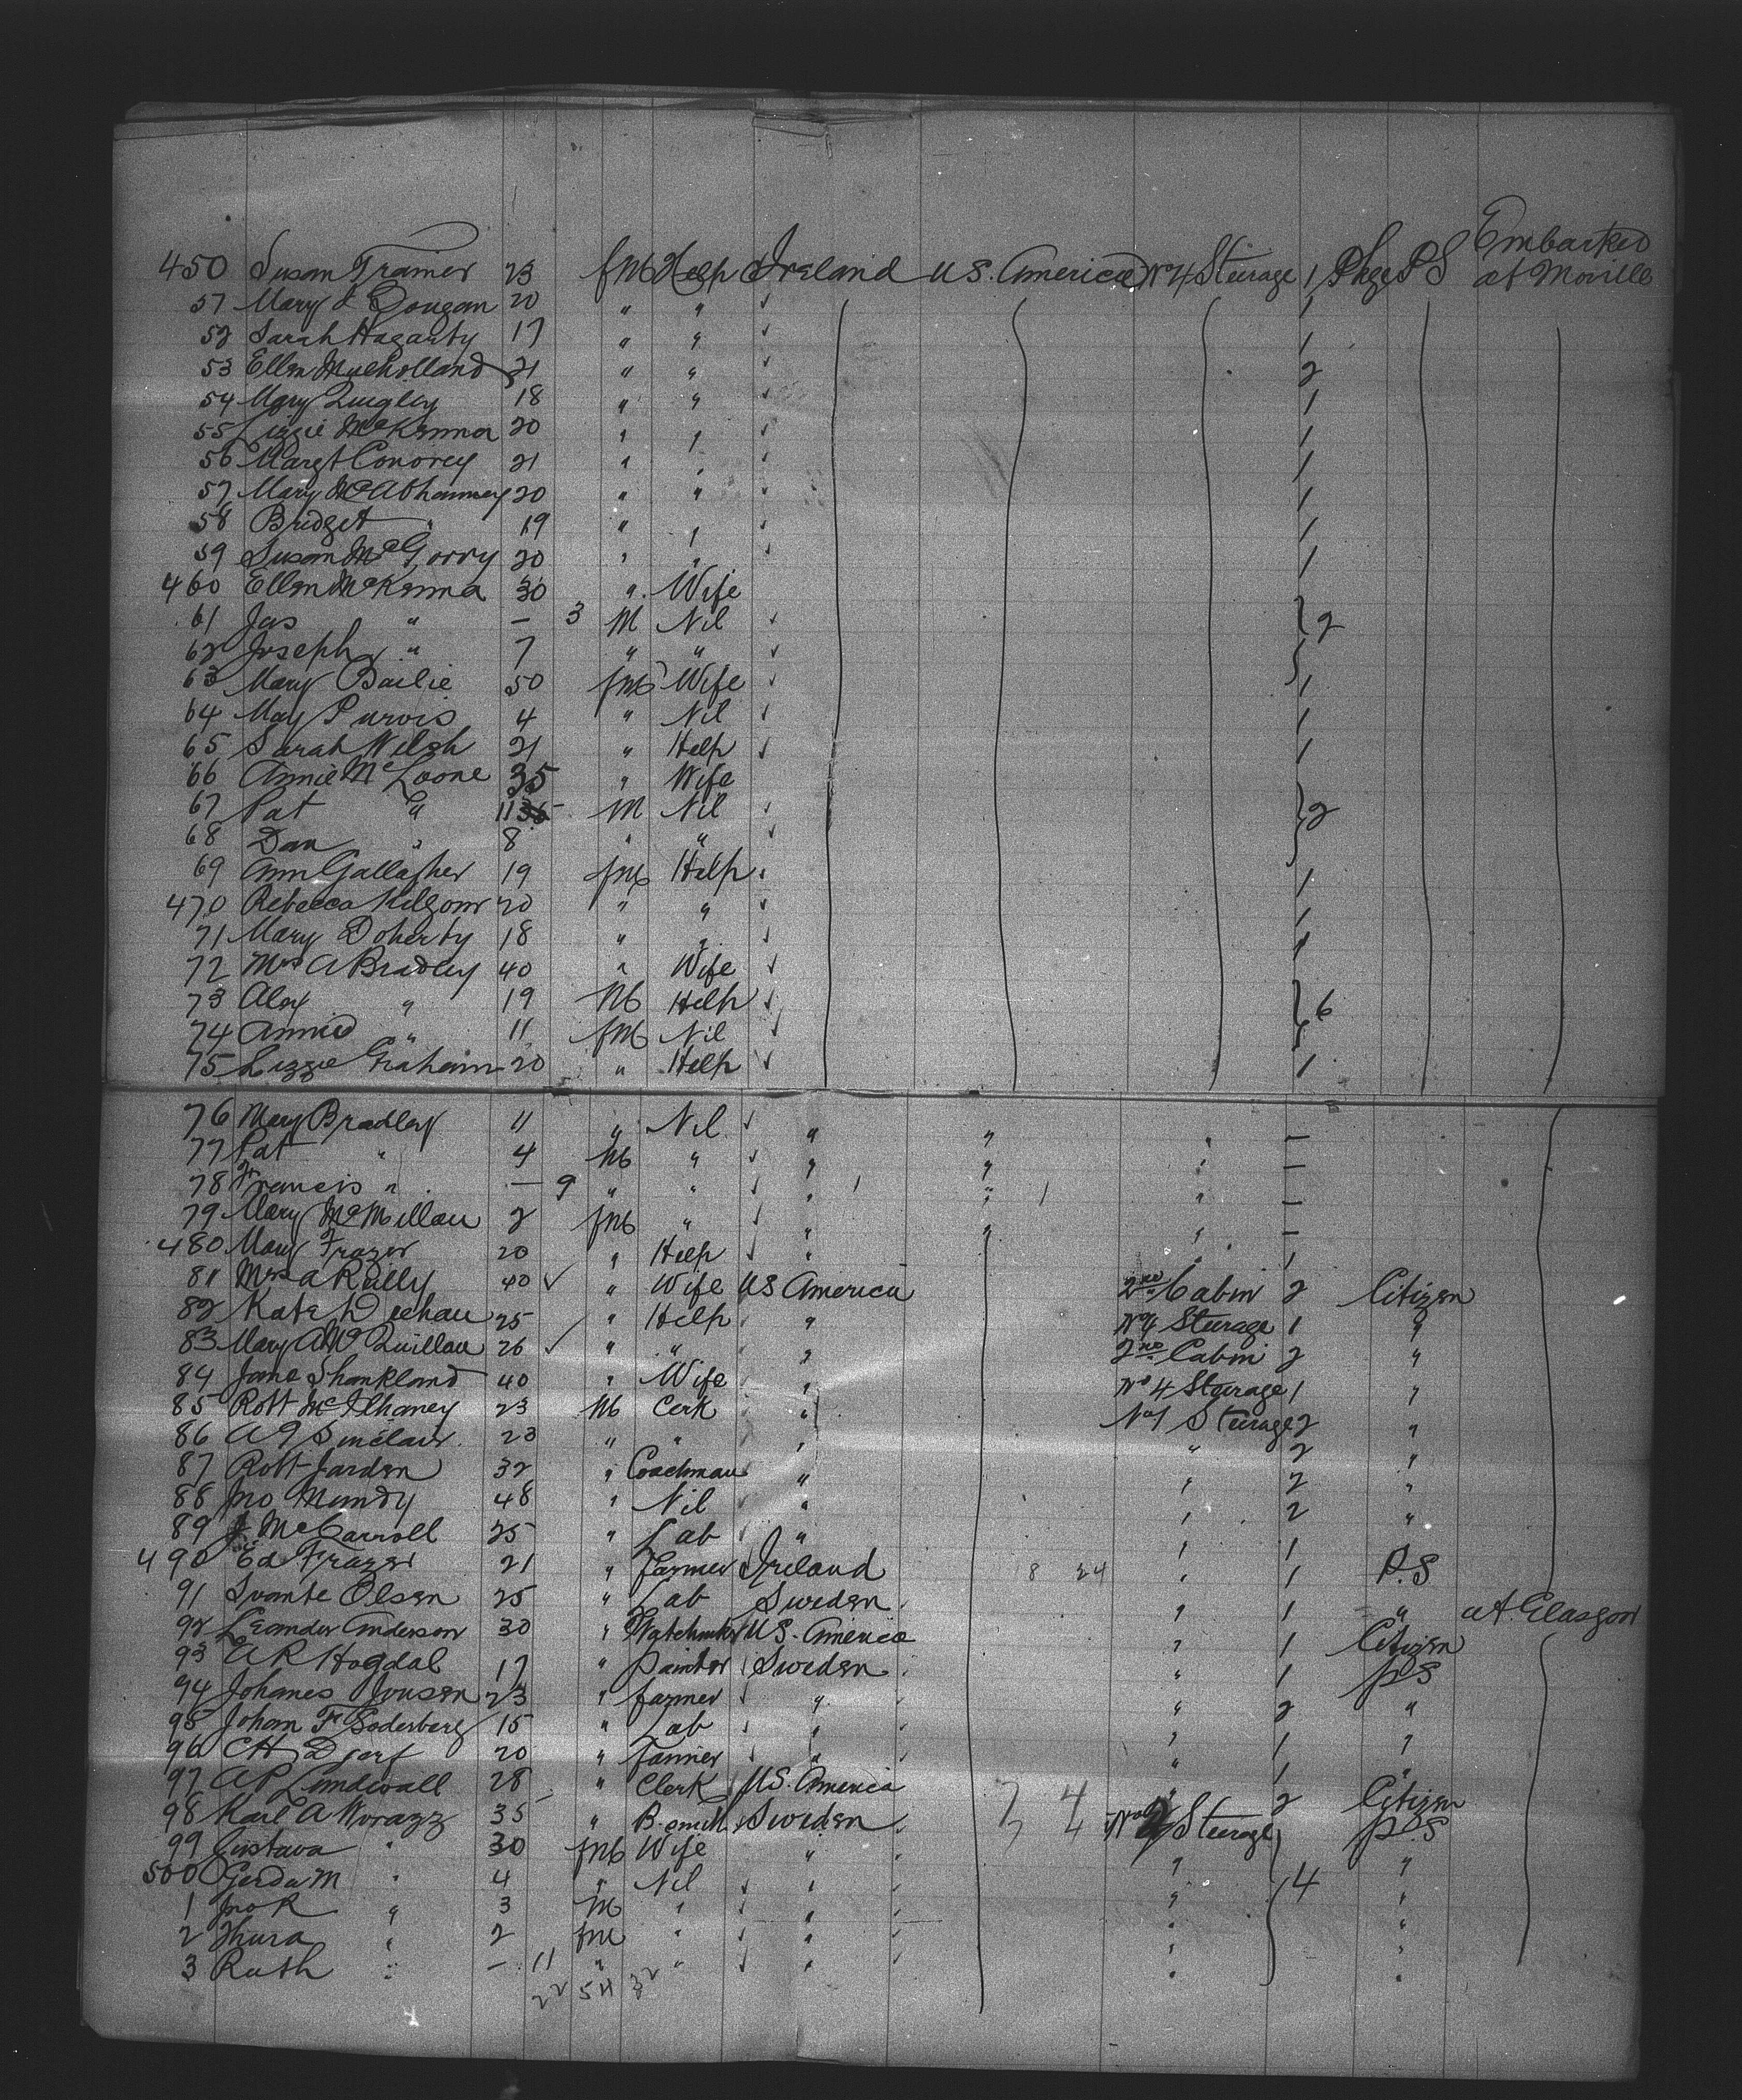 Embarked
450 Susan Trainer 23 fm Help Ireland U.S. America No 4 Steerage 1 Pkge P S at Moville
51 Mary J Dougan 20 " " ✓ 1
52 Sarah Hagarty 17 " " ✓ 1
53 Ellen Mulholland 21 " " ✓ 2
54 Mary Quigley 18 " " ✓ 1
55 Lizzie McKenna 20 " " ✓ 1
56 Margt Conorey 21 " " ✓ 1
57 Mary 20 " " ✓ 1
58 Bridget " 19 " " ✓ 1
59 Susan McGorry 20 " " ✓ 1
460 Ellen McKenna 30 " Wife
61 Jas " — 3 M Nil ✓ } 2
62 Joseph " 7 " " ✓
63 Mary Bailie 50 fm Wife ✓ 1
64 May Purvis 4 " Nil ✓ 1
65 Sarah Welsh 21 " Help ✓ 1
66 Annie McLoone 35 " Wife
67 Pat " 11 M Nil ✓ } 2
68 Dan " 8 " " ✓
69 Ann Gallagher 19 fm Help ✓ 1
470 Rebecca Kilgour 20 " " ✓ 1
71 Mary Doherty 18 " " ✓ 1
72 Mrs A Bradley 40 " Wife ✓
73 Alex " 19 M Help ✓ } 6
74 Annie " 11 fm Nil ✓
75 Lizzie Graham 20 " Help ✓ 1
76 Mary Bradley 11 " Nil ✓ " " " —
77 Pat " 4 M " ✓ " " " —
78 Francis " — 9 " " ✓ " 1 " 1 " —
79 Mary McMillan 2 fm " ✓ " " " —
480 Mary Frazer 20 " Help ✓ " " 1
81 Mrs A Reilly 40 ✓ " Wife US America 2nd Cabin 2 Citizen
82 Kate Deehan 25 " Help " No 4 Steerage 1 "
83 Mary A McQuillan 26 ✓ " " " 2nd Cabin 2 "
84 Jane Shankland 40 " Wife " No 4 Steerage 1 "
85 Robt McIlhaney 23 M Cerk " No 1 Steerage 2 "
86 A J Sinclair 23 " " " " 2 "
87 Robt Jarden 32 " Coachman " " 2 "
88 Jno Mundy 48 " Nil " " 2 "
89 J McCarroll 25 " Lab " " 1
490 Ed Frazer 21 " Farmer Ireland 8 24 " 1 P.S
91 Svante Olsen 25 " Lab Sweden " 1 " at Glasgow
92 Leander Anderson 30 " US. America " 1 Citizen
93 A R Hogdal 17 " Painter Sweden " 1 PS
94 Johanes Jonsen 23 " Farmer ✓ " " 2 "
95 Johan F Soderberg 15 " Lab ✓ " " 1 "
96 C H 20 " Farmer ✓ " " 1 "
97 A P Lindwall 28 " Clerk US. America " 2 Citizen
98 Karl A 35 " B.smith Sweden 7 4 Steerage P.S
99 Gustava " 30 fm Wife " " "
500 Gerda M " 4 " Nil ✓ " " } 4 "
1 Jno R " 3 M " ✓ " " "
2 Thura " 2 fm " ✓ " " "
3 Ruth " — 11 " " ✓ " " "
22 54 32